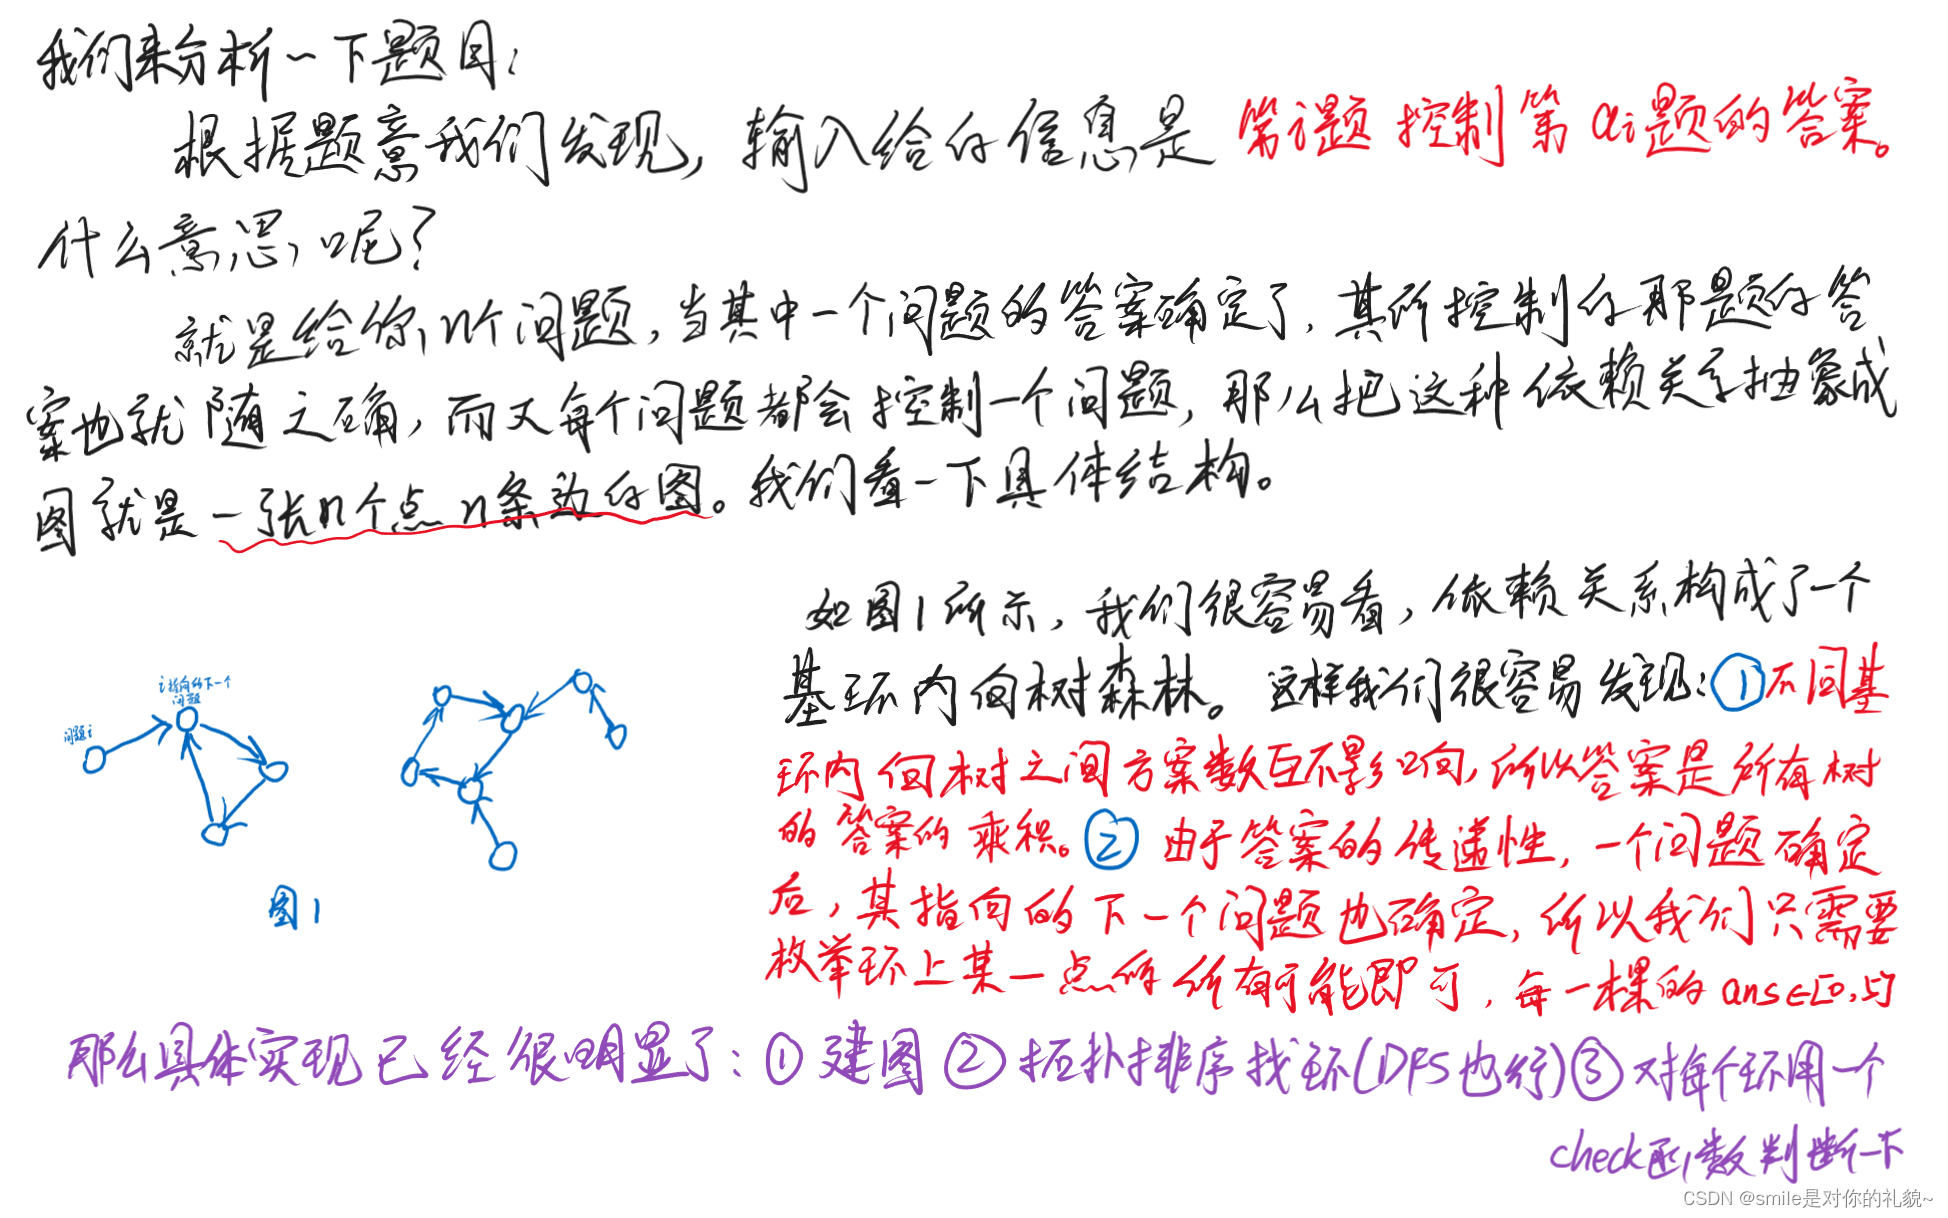 我们来分析一下题目：
根据题意我们发现，输入给的信息是 第i题控制第ai题的答案。
什么意思呢？
就是给你n个问题，当其中一个问题的答案确定了，其所控制的那题的答
案也就随之确，而又每个问题都会控制一个问题，那么把这种依赖关系抽象成
图就是一张n个点n条边的图。我们看一下具体结构。
如图1所示，我们很容易看，依赖关系构成了一个
基环内向树森林。这样我们很容易发现：①不同基
环内向树之间方案数互不影响，所以答案是所有树
的答案的乘积。②由于答案的传递性，一个问题确定
后，其指向的下一个问题也确定，所以我们只需要
枚举环上某一点的所有可能即可，每一棵的ans∈[0,5]
i指向的下一个
问题
问题i
图1
那么具体实现已经很明显了：①建图②拓扑排序找环(DFS也行)③对每个环用一个
check函数判断一下
CSDN @smile是对你的礼貌~